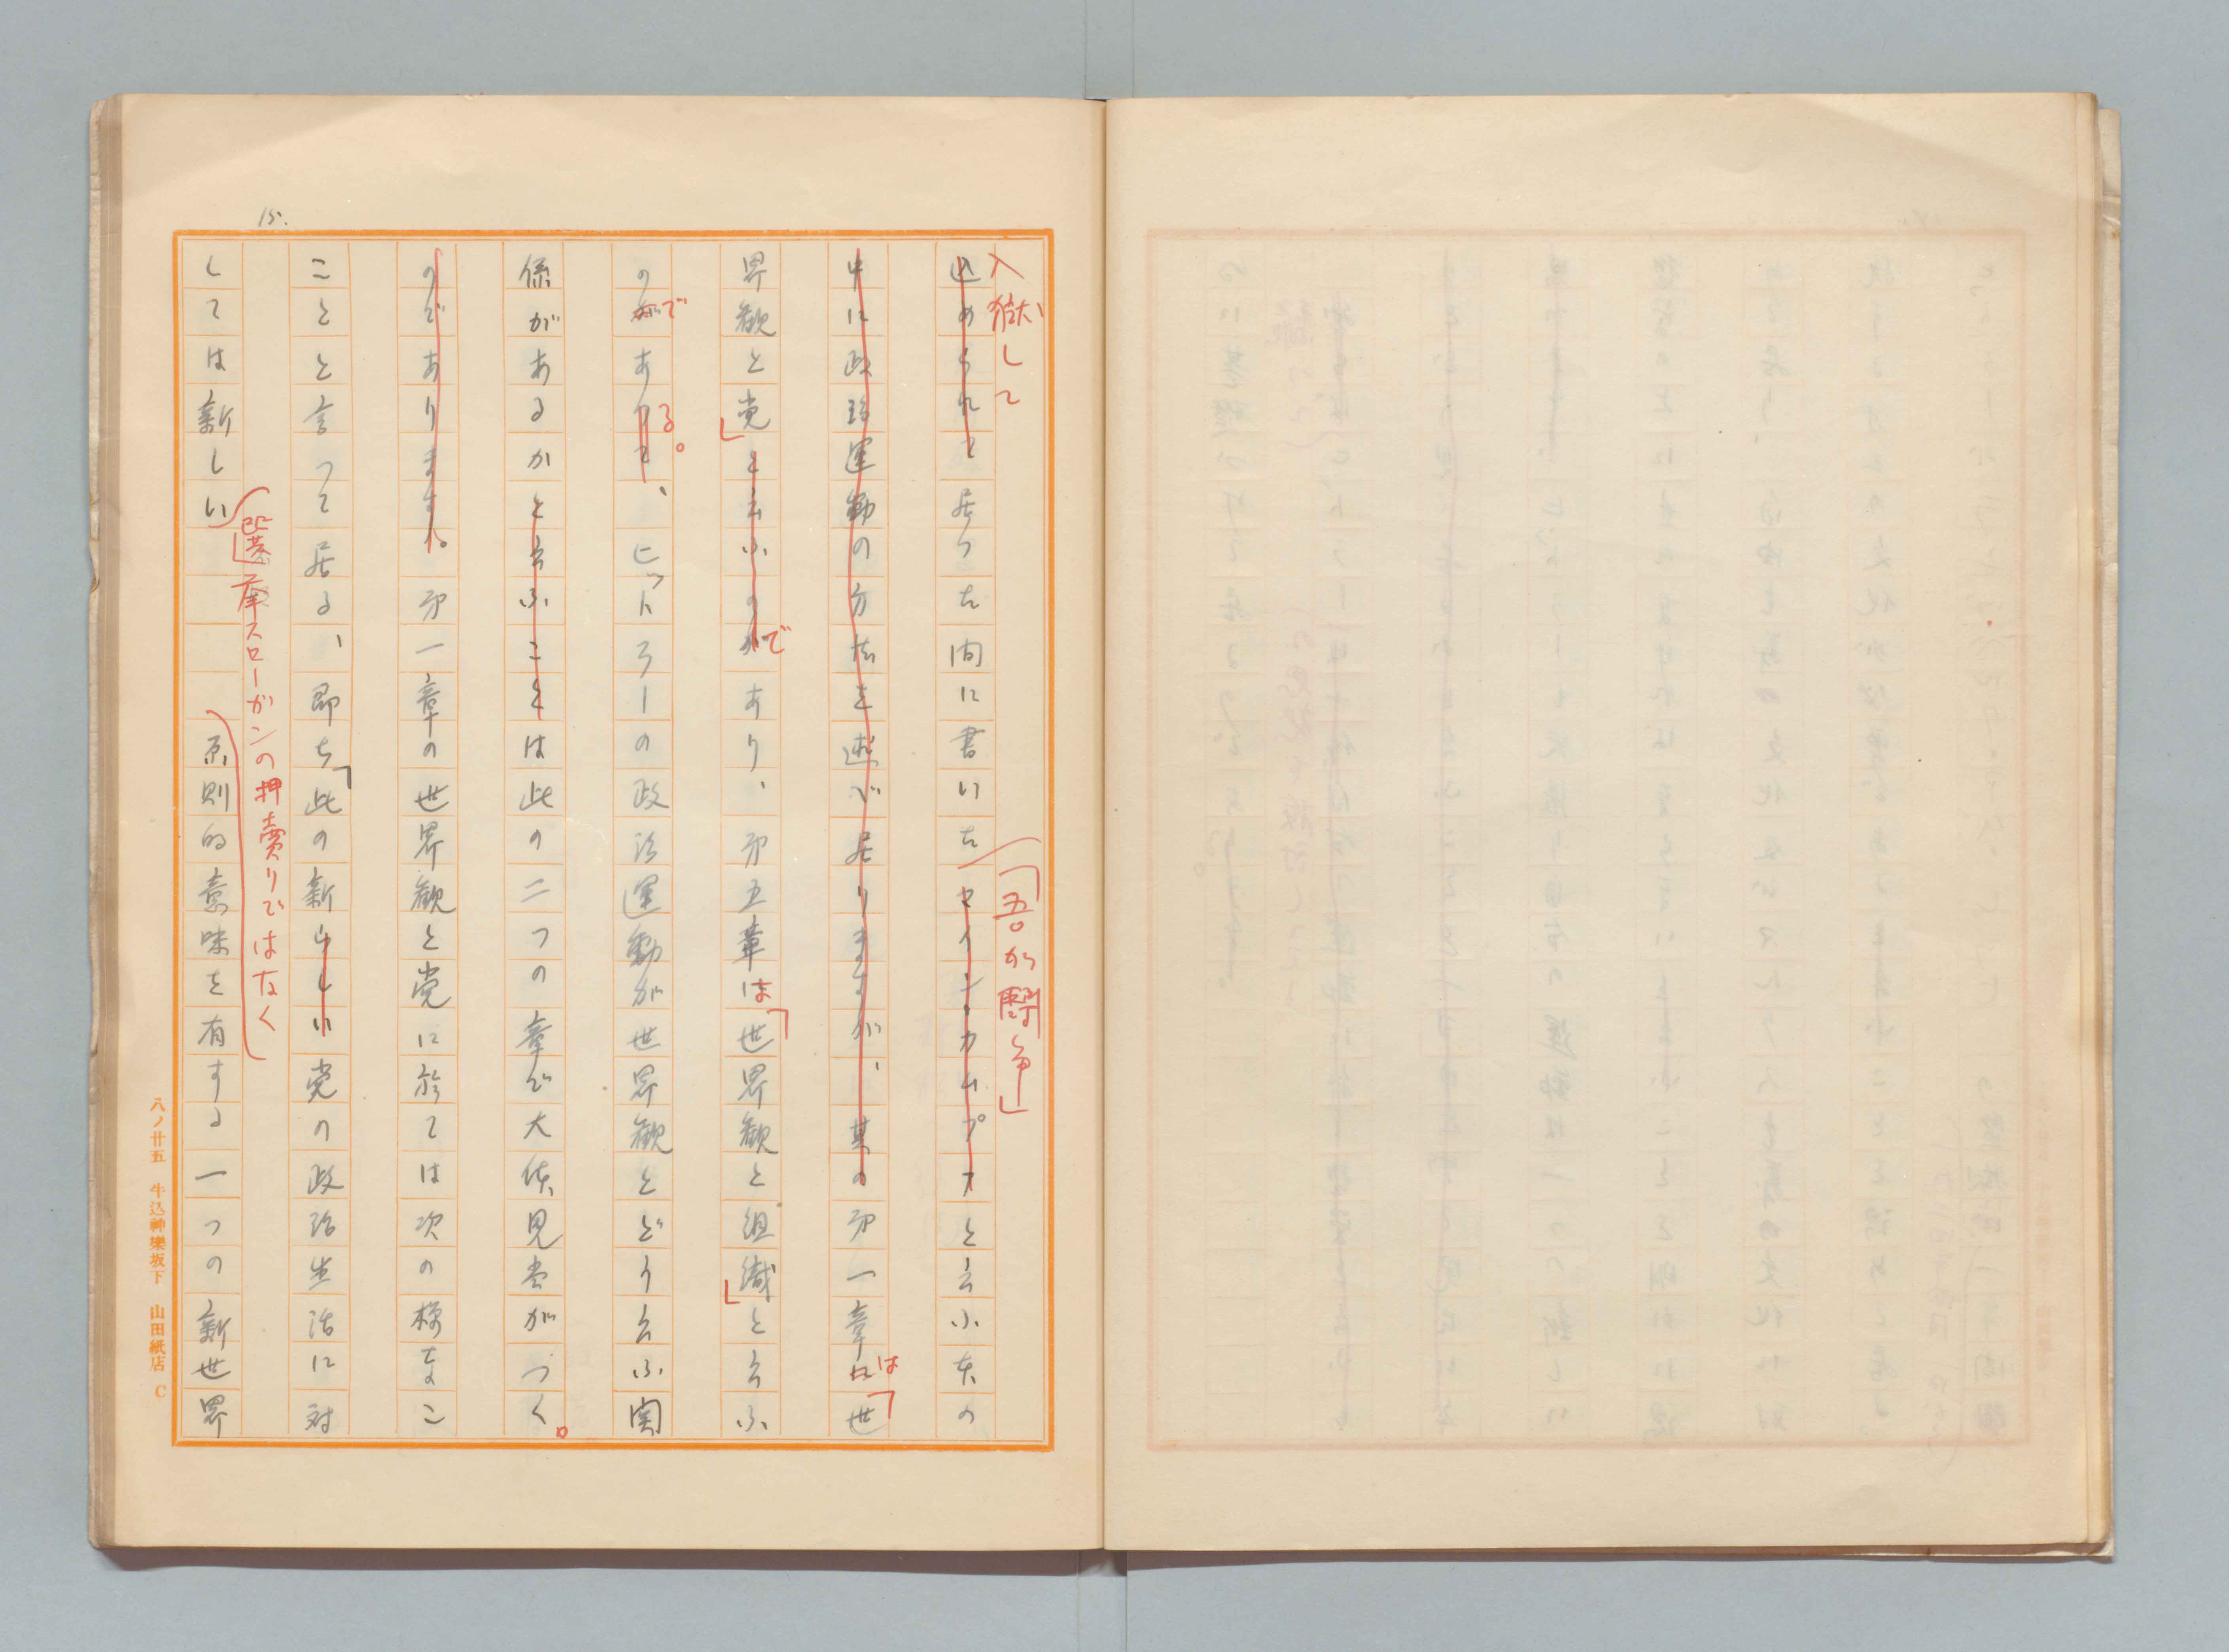 15.
入獄して
込められて居つた間に書いたマインカムプフと云ふ本の
「吾が闘争」
中に政治運動の方法を述べ居りますが、其の第一章には「世
界観と党」と云ふのがであり、第五章は「世界観と組織」と云ふ
のがであるりて。、ヒットラーの政治運動が世界観とどう云ふ関
係があるかと云ふことは此の二つの章で大体見当がつく。
のであります。第一章の世界観と党に於ては次の様なこ
ことと言つて居る、即ち「此の新らしい党の政治生活に対
選挙スローガンの押売りではなく
しては新しい 原則的意味を有する一つの新世界
八ノ廿五 牛込神樂坂下 山田紙店 C